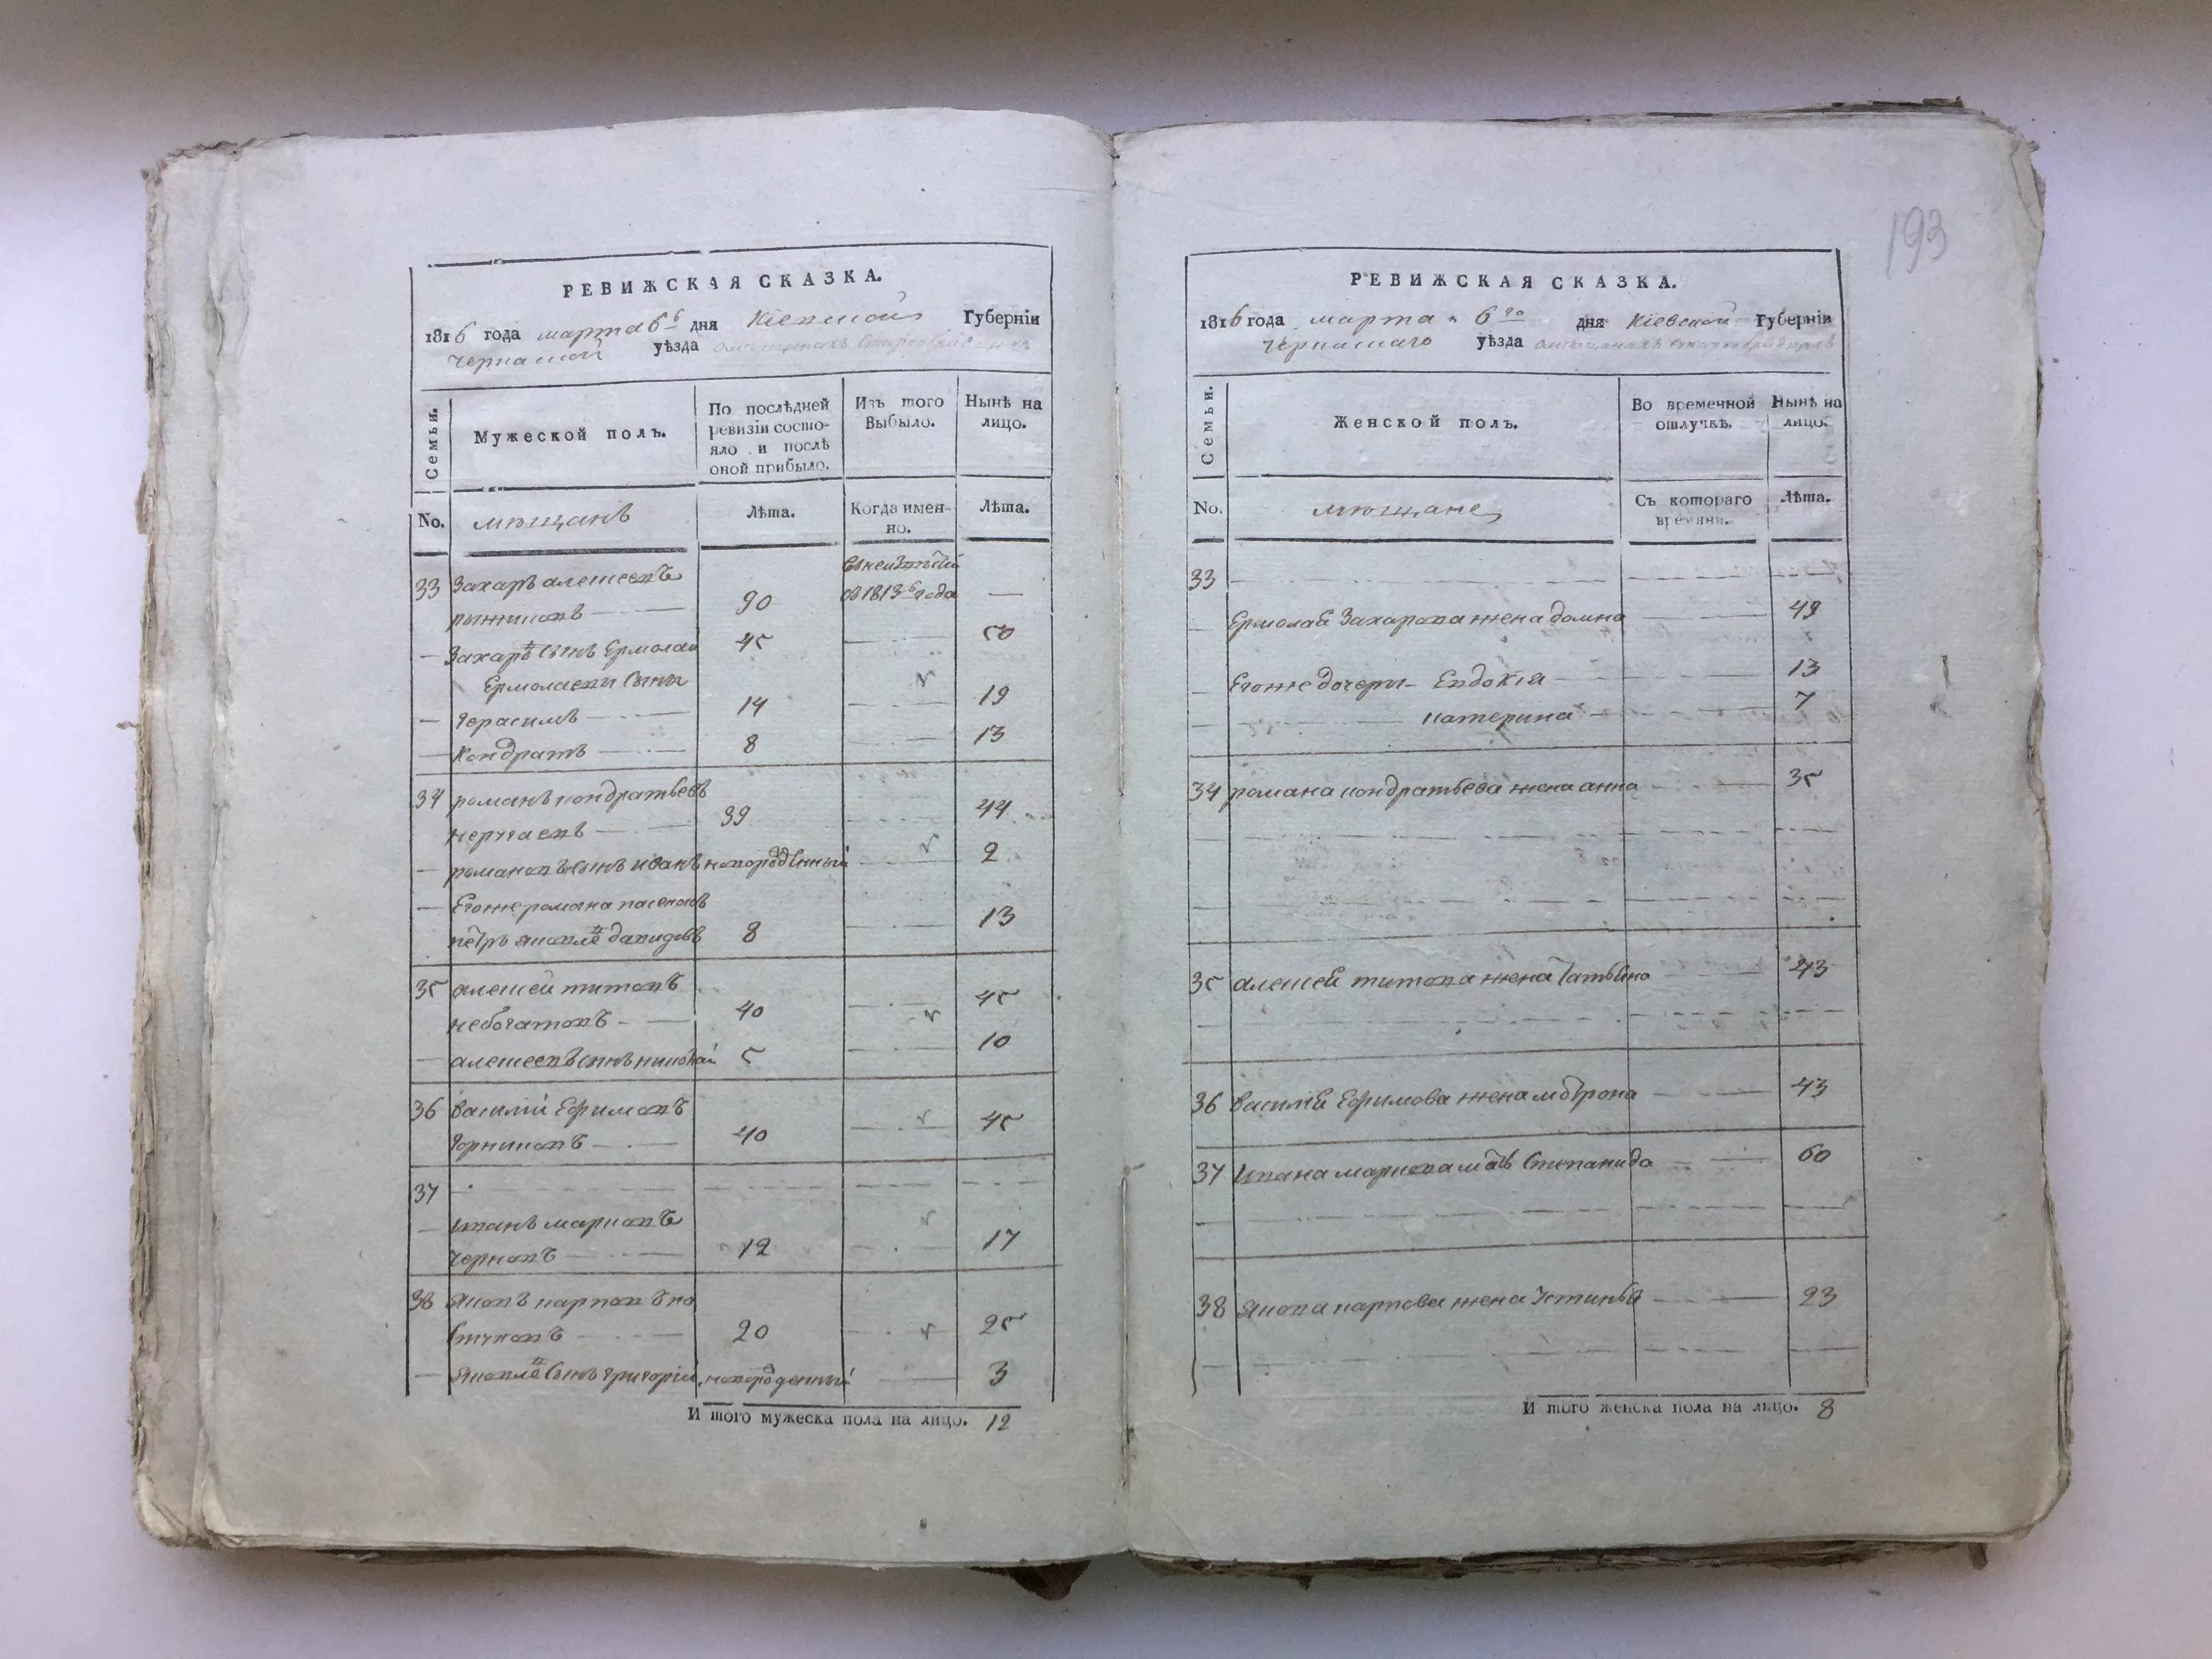 193
РЕВИЖСКАЯ СКАЗКА.
1816 года марта 6го дня Кіевской Губерніи
Черкаской уѣзда омѣщанахъ старообрядцахъ
Семьи.
Мужеской полъ.
По послѣдней
ревизіи состо-
яло и послѣ
оной прибыло.
Изъ того
Выбыло.
Нынѣ на
лицо.
No.
мѣщанъ
Лѣта.
Когда имен-
но.
Лѣта.
33 Захаръ алексеевъ
90 в 1813 года —
— Захаръ сынъ Ермолай 45 50
Ермолаевы сыны
— Герасимъ 14 19
— Кондратъ 8 13
34 романъ кондратьевъ
39 44
— романовъ сынъ иванъ новорожденный 2
— Егоже романа пасенокъ
петръ яковлевъ давидовъ 8 13
35 алексей титовъ
небогатовъ 40 45
— алексеевъ сынъ николай 5 10
36 василий Ефимовъ
40 45
37
— иванъ марковъ
черновъ 12 17
38 яковъ карповъ
20 25
— яковлевъ сынъ григорій новорожденный 3
И того мужеска пола на лицо. 12
РЕВИЖСКАЯ СКАЗКА.
1816 года марта 6го дня Кіевской Губерніи
Черкаскаго уѣзда омѣщанахъ старообрядцахъ
Семьи.
Женской полъ.
Во временной
отлучкѣ.
Нынѣ на
лицо.
No.
мѣщане
Съ котораго
времяни.
Лѣта.
33
Ермолая Захарова жена домна 49
Егоже дочери Евдокія 13
катерина 7
34 романа кондратьева жена анна 35
35 алексея титова жена Татьяна 43
36 василія Ефимова жена матрона 43
37 Ивана маркова мать Степанида 60
38 якова карпова жена Устинья 23
И того женска пола на лицо. 8